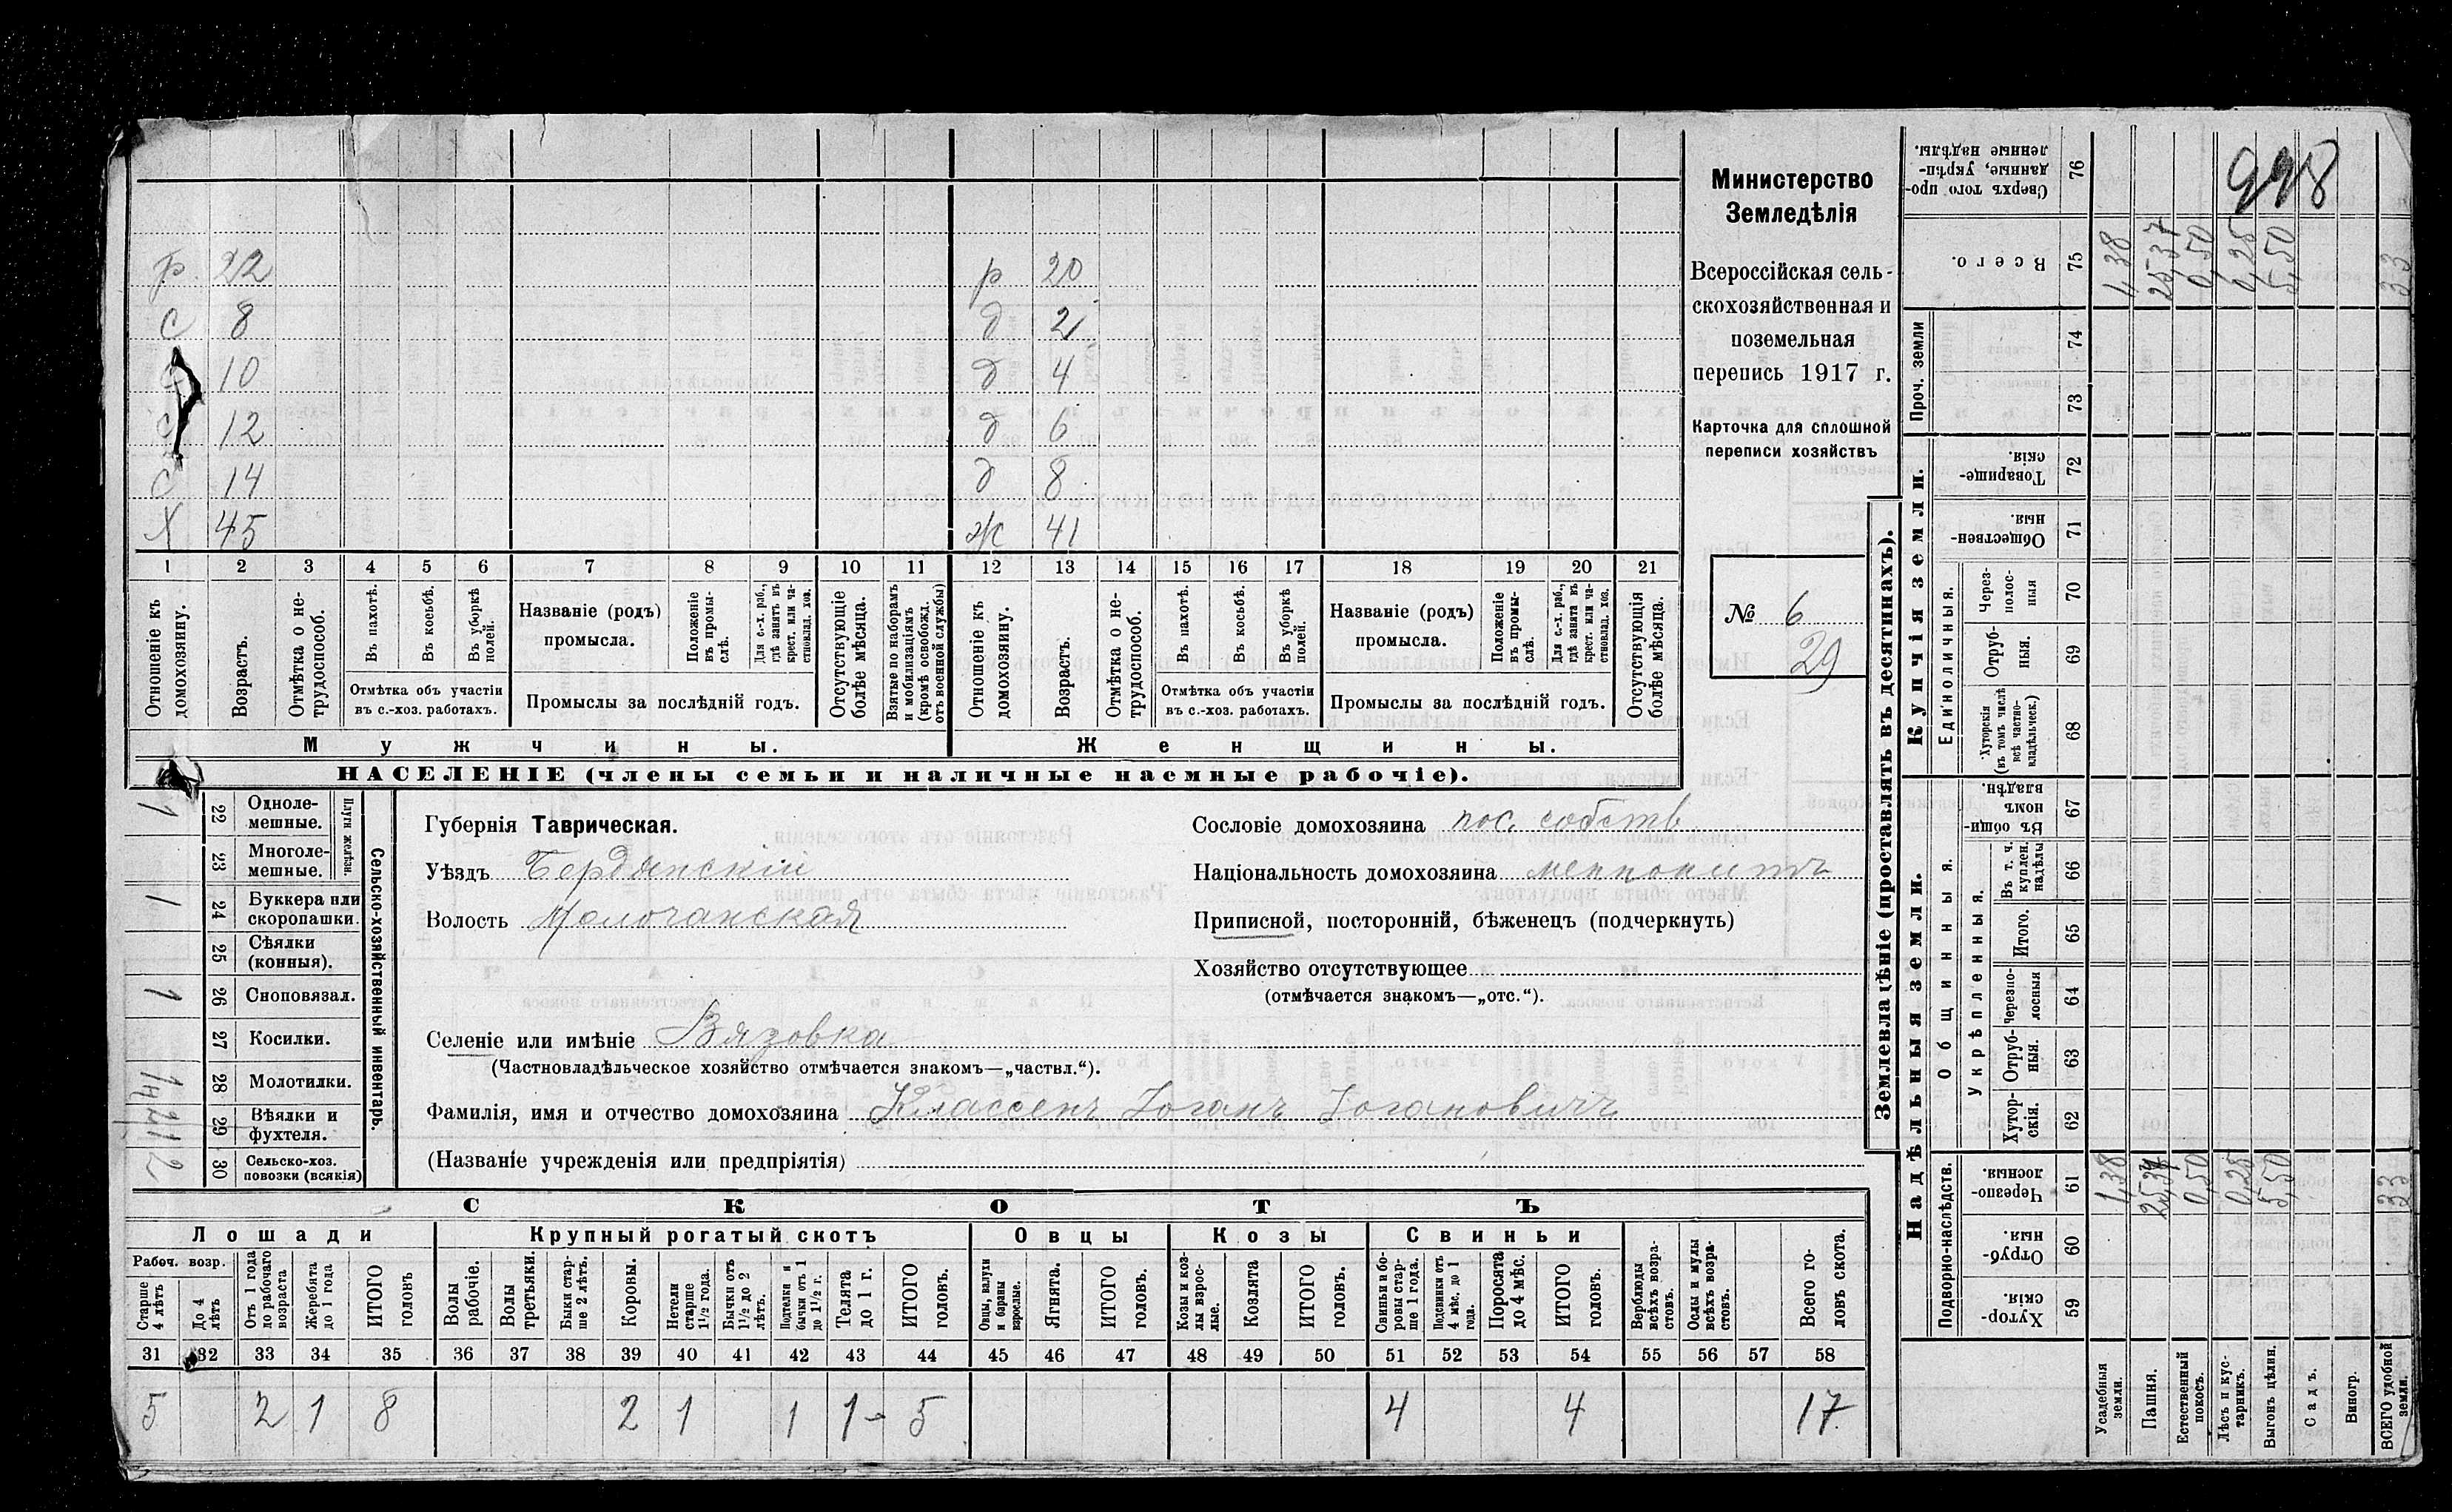 Министерство
Земледѣлія
Всероссійская сель-
скохозяйственная и
поземельная
перепись 1917 г.
Карточка для сплошной
переписи хозяйствъ
№ 6
29
р. 22
с 8
10
с 12
с 14
Х 45
р 20
д 2
д 4
д 6
д 8
ж 41
1 2 3 4 5 6 7 8 9 10 11 12 13 14 15 16 17 18 19 20 21
Отношеніе къ домохозяину.
Возрастъ.
Отмѣтка о не-трудоспособ.
Въ пахотѣ.
Въ косьбѣ.
Въ уборкѣ полей.
Отмѣтка объ участіи
въ с.-хоз. работахъ.
Названіе (родъ)
промысла.
Положеніе въ промы-слѣ.
Для с.-х. раб., гдѣ занятъ въ крест. или ча-стновлад. хоз.
Промыслы за послѣдній годъ.
Отсутствующіе болѣе мѣсяца.
Взятые по наборамъ и мобилизаціямъ (кромѣ освобожд. отъ военной службы)
Отношеніе къ домохозяину.
Возрастъ.
Отмѣтка о не-трудоспособ.
Въ пахотѣ.
Въ косьбѣ.
Въ уборкѣ полей.
Отмѣтка объ участіи
въ с.-хоз. работахъ.
Названіе (родъ)
промысла.
Положеніе въ промы-слѣ.
Для с.-х. раб., гдѣ занята въ крест. или ча-стновлад. хоз.
Промыслы за послѣдній годъ.
Отсутствующія болѣе мѣсяца.
Мужчины. Женщины.
НАСЕЛЕНІЕ (члены семьи и наличные наемные рабочіе).
Губернія Таврическая.
Уѣздъ Бердянскій
Волость Молочанская
Сословіе домохозяина пос. собств.
Національность домохозяина меннонитъ
Приписной, посторонній, бѣженецъ (подчеркнуть)
Хозяйство отсутствующее
(отмѣчается знакомъ—„отс.“).
Селеніе или имѣніе Вязовка
(Частновладѣльческое хозяйство отмѣчается знакомъ—„частвл.“).
Фамилія, имя и отчество домохозяина Классенъ Іоганъ Іогановичъ
(Названіе учрежденія или предпріятія)
Сельско-хозяйственный инвентарь.
Плуги желѣзн.
22 Одноле-мешные. 1
23 Многоле-мешные.
24 Буккера или скоропашки. 1
25 Сѣялки (конныя).
26 Сноповязал. 1
27 Косилки.
28 Молотилки.
29 Вѣялки и фухтеля.
30 Сельско-хоз. повозки (всякія) 2
СКОТЪ
Лошади Крупный рогатый скотъ Овцы Козы Свиньи
Рабоч. возр.
Старше 4 лѣтъ
До 4 лѣтъ
Отъ 1 года до рабочаго возраста
Жеребята до 1 года
ИТОГО головъ
Волы рабочіе.
Волы третьяки.
Быки стар-ше 2 лѣтъ.
Коровы.
Нетели старше 1½ года.
Бычки отъ 1½ до 2 лѣтъ.
Подтелки и бычки отъ 1 до 1½ г.
Телята до 1 г.
ИТОГО головъ.
Овцы, валухи и бараны взрослые.
Ягнята.
ИТОГО головъ.
Козы и коз-лы взрос-лые.
Козлята
ИТОГО головъ.
Свиньи и бо-ровы стар-ше 1 года.
Подсвинки отъ 4 мѣс. до 1 года.
Поросята до 4 мѣс.
ИТОГО головъ.
Верблюды всѣхъ возра-стовъ.
Ослы и мулы всѣхъ возра-стовъ.
Всего го-ловъ скота.
31 32 33 34 35 36 37 38 39 40 41 42 43 44 45 46 47 48 49 50 51 52 53 54 55 56 57 58
5 2 1 8 2 1 1 1 5 4 4 17
Землевладѣніе (проставлять въ десятинахъ).
Надѣльныя земли. Купчія земли. Проч. земли
Подворно-наслѣдств.
Общинныя.
Укрѣпленныя.
Единоличныя.
Хутор-скія. 59
Отруб-ныя. 60
Черезпо-лосныя. 61
Хутор-скія. 62
Отруб-ныя. 63
Черезпо-лосныя 64
Итого. 65
Въ т. ч. куплен. надѣлы 66
Въ общи-номъ владѣн. 67
Хуторскія (въ томъ числѣ всѣ частно-владѣльческ.) 68
Отруб-ныя. 69
Через-полос-ныя 70
Обществен-ныя. 71
Товарище-скія. 72
73
74
Всего. 75
Сверхъ того про-данные, укрѣп-ленные надѣлы. 76
Усадебныя земли. 1,38 1,38
Пашня. 25,37 25,37
Естественный покосъ. 0,50 0,50
Лѣсъ и кус-тарникъ. 0,25 0,25
Выгонъ цѣлин. 5,50 5,50
Садъ.
Виногр.
ВСЕГО удобной земли. 33 33